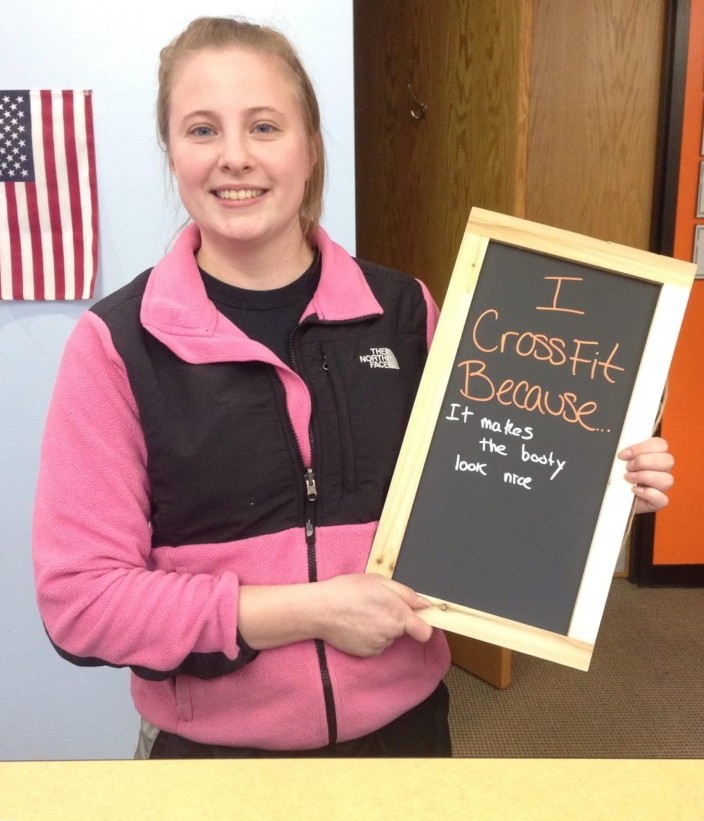 THE
NORTH
FACE
I
CrossFit
Because...
It makes
the booty
look nice